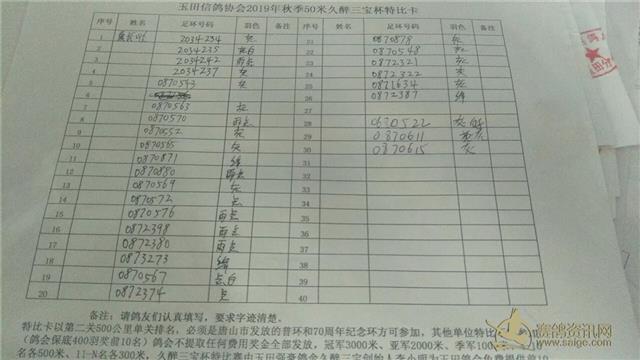 玉田信鸽协会2019年秋季50米久醉三宝杯特比卡
序号 姓名 足环号码 羽色 备注 序号 姓名 足环号码 羽色 备注
1 2034234 灰 21 0870878 灰
2 2034235 灰白 22 0870548 灰
3 2034242 雨点 23 0872321 灰
4 2034237 灰 24 0872322 灰
5 0870543 灰 25 0871634 灰
6 26 0872387 绛
7 0870563 灰 27
8 0870570 雨点 28
9 0870552 灰 29 0870611
10 0870565 灰 30 0870615 灰
11 0870871 绛 31
12 0870880 雨点 32
13 0870569 灰 33
14 0870572 点 34
15 0870576 雨点 35
16 0872398 雨点 36
17 0872380 雨点 37
18 0873273 绛 38
19 0870567 点白 39
20 0872374 点 40
备注:请鸽友们认真填写,要求字迹清楚。
特比卡以第二关500公里单关排名,必须是唐山市发放的普环和70周年纪念环方可参加,其他单位特比
(鸽会保底400羽奖前10名)鸽会不提取任何费用奖金全部发放,冠军3000米、亚军2000米、季军100
名各500米、11-N名各300米,久醉三宝杯特比赛由玉田
赛鸽资讯网
www.saige.com